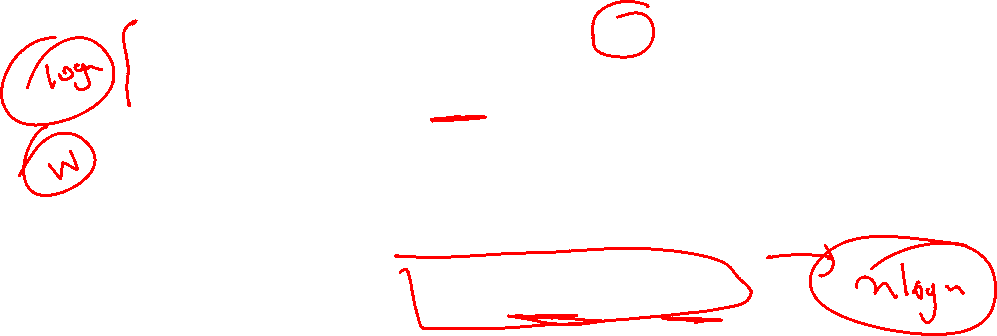 logn
n
nlogn